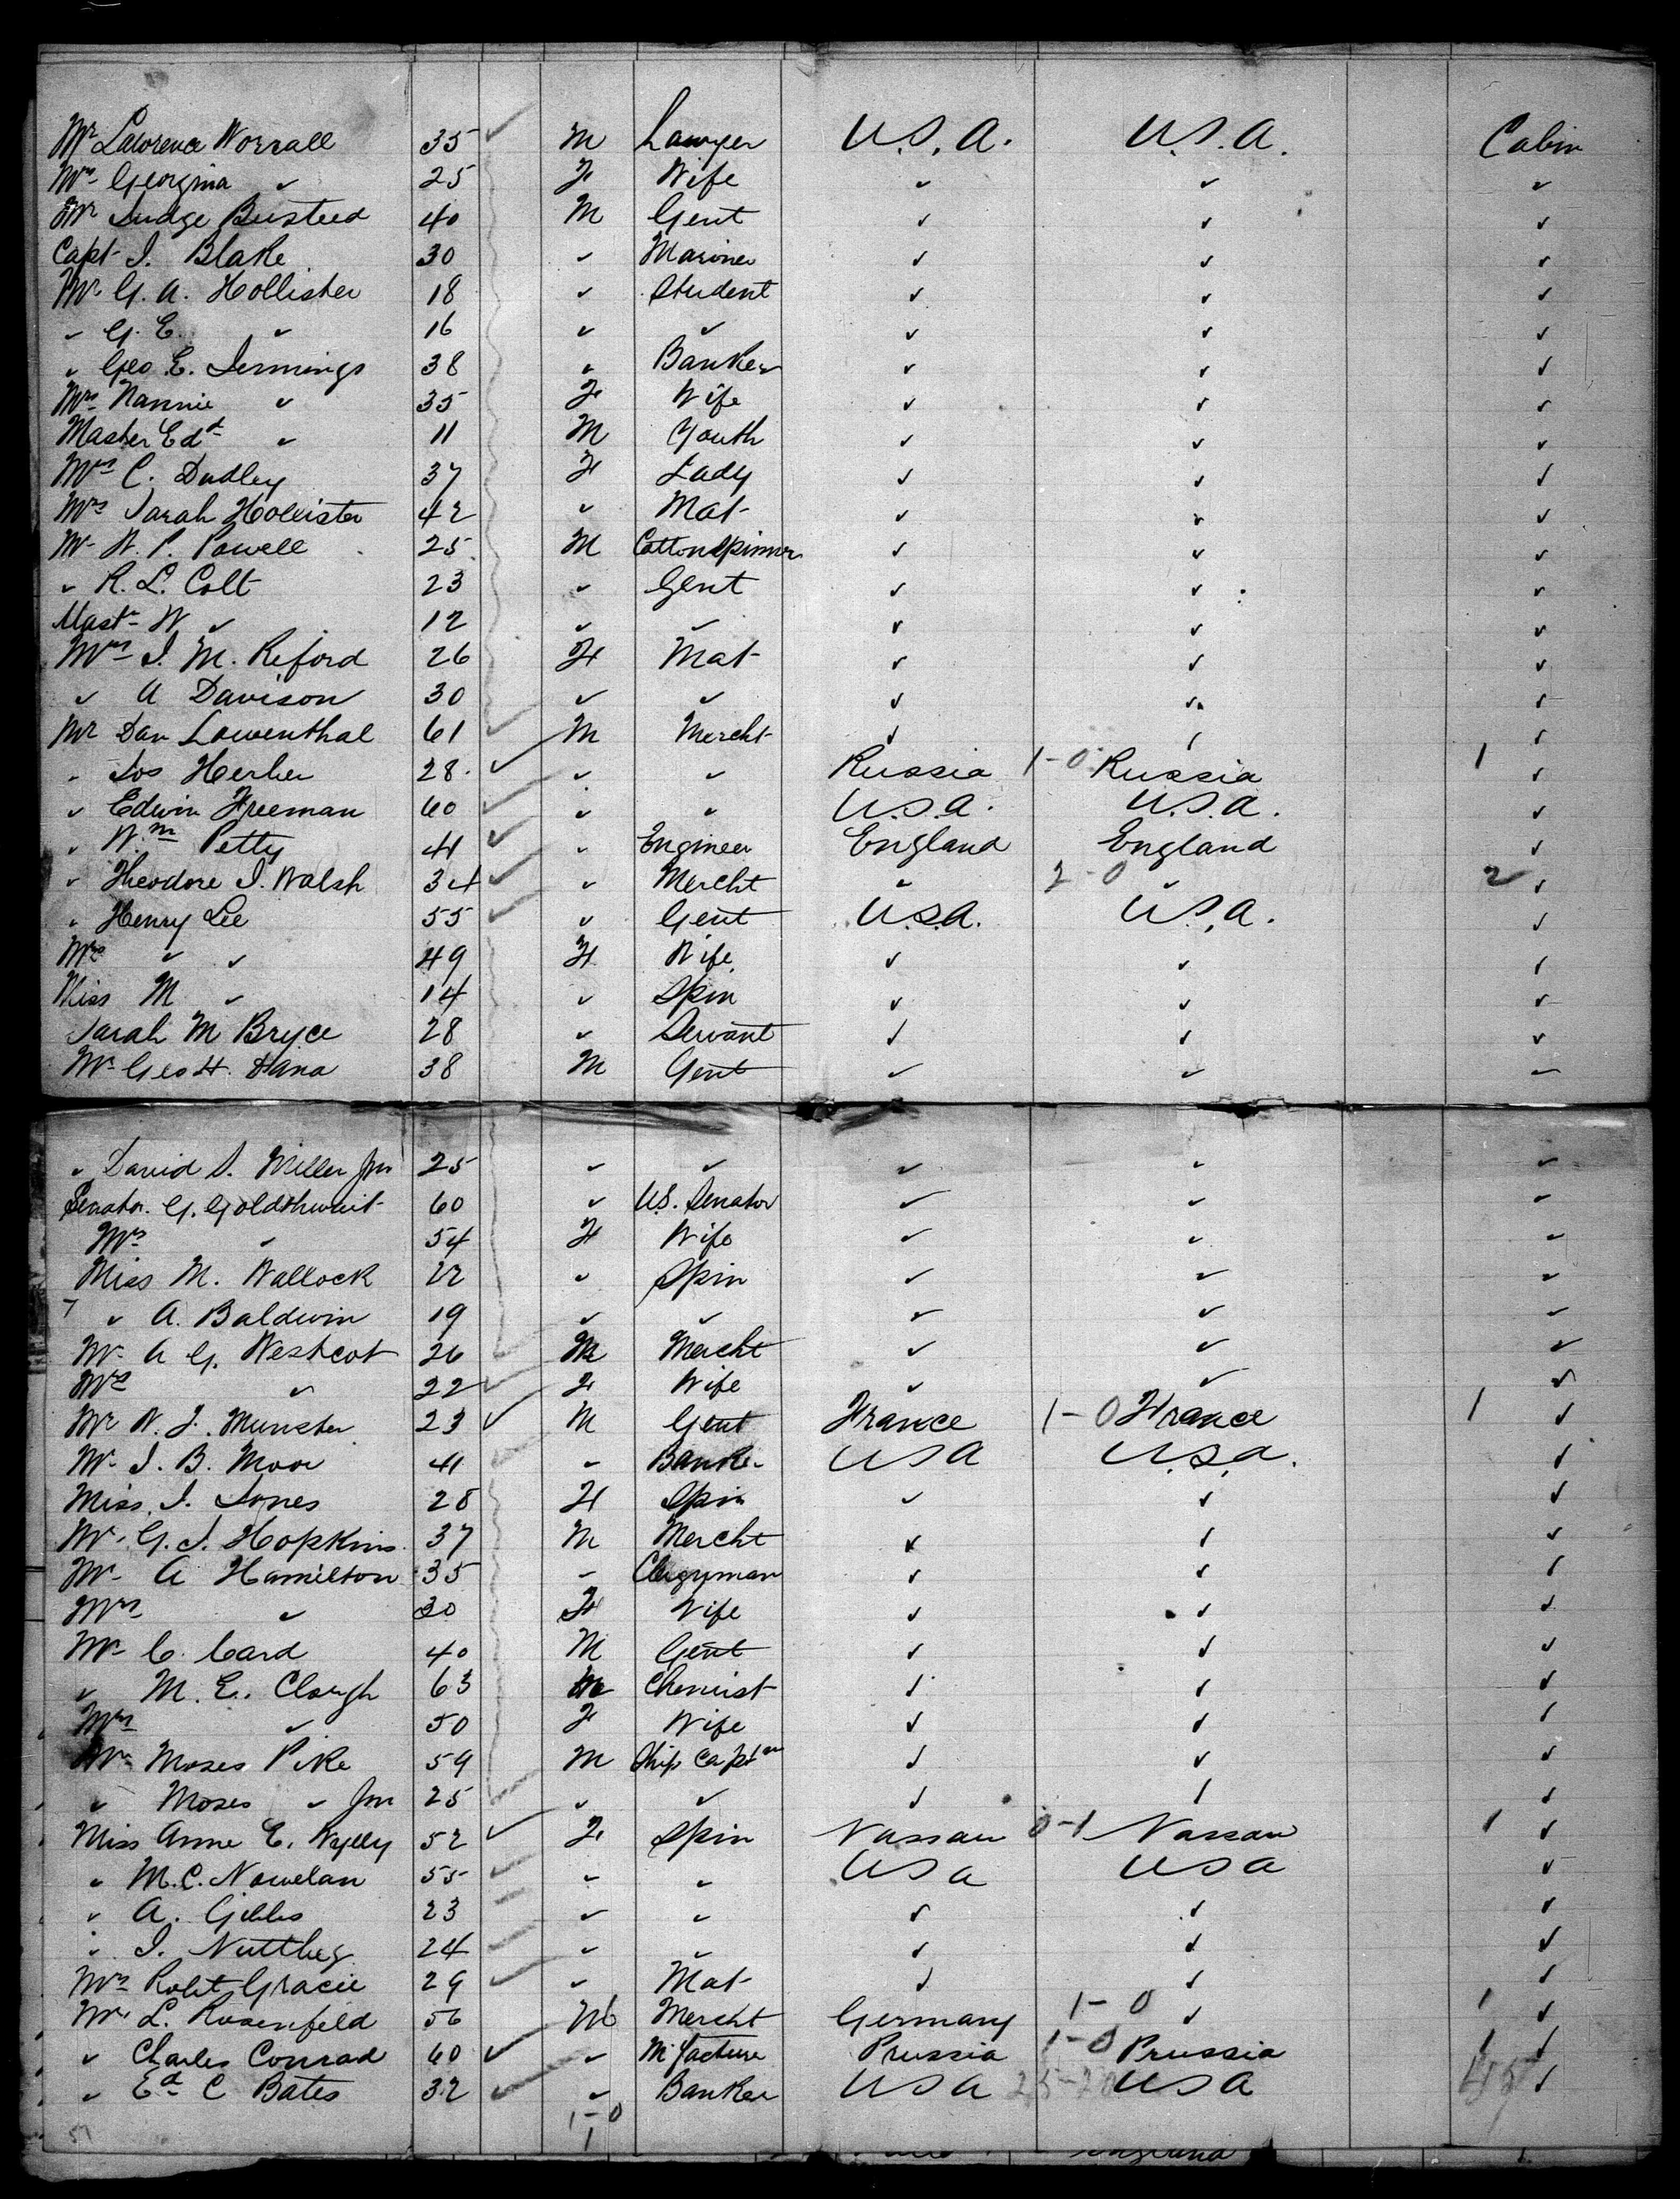 Mr Lawrence Worrall 35 ✓ M Lawyer U.S.A. U.S.A. Cabin
Mrs Georgina ✓ 25 F Wife ✓ ✓ ✓
Mr Judge Busteed 40 M Gent ✓ ✓ ✓
Capt J. Blake 30 ✓ Mariner ✓ ✓ ✓
Mr G. A. Hollister 18 ✓ Student ✓ ✓ ✓
✓ G. E. ✓ 16 ✓ ✓ ✓ ✓ ✓
✓ Geo E. Jennings 38 ✓ Banker ✓ ✓ ✓
Mrs Nannie ✓ 35 F Wife ✓ ✓ ✓
Master Edd ✓ 11 M Youth ✓ ✓ ✓
Mrs C. Dudley 37 F Lady ✓ ✓ ✓
Mrs Sarah Hollister 42 ✓ Mat ✓ ✓ ✓
Mr W. P. Powell 25 M Cotton Spinner ✓ ✓ ✓
✓ R. L. Colt 23 ✓ Gent ✓ ✓ ✓
Mastr W ✓ 12 ✓ ✓ ✓ ✓ ✓
Mrs J. M. Reford 26 F Mat ✓ ✓ ✓
✓ A Davison 30 ✓ ✓ ✓ ✓ ✓
Mr Dan Lowenthal 61 ✓ M Mercht ✓ ✓ ✓
✓ Jos Herber 28 ✓ ✓ ✓ Russia 1-0 Russia 1 ✓
✓ Edwin Freeman 60 ✓ ✓ ✓ U.S.A. U.S.A. ✓
✓ Wm Petty 41 ✓ ✓ Engineer England England ✓
✓ Theodore J. Walsh 34 ✓ ✓ Mercht ✓ 2-0 ✓ 2 ✓
✓ Henry Lee 55 ✓ ✓ Gent U.S.A. U.S.A. ✓
Mrs ✓ ✓ 49 F Wife ✓ ✓ ✓
Miss M ✓ 14 ✓ Spin ✓ ✓ ✓
Sarah M Bryce 28 ✓ Servant ✓ ✓ ✓
Mr Geo H. Dana 38 M Gent ✓ ✓ ✓
✓ David S. Miller Jnr 25 ✓ ✓ ✓ ✓ ✓
Senator G. Goldthwait 60 ✓ U.S. Senator ✓ ✓ ✓
Mrs ✓ 54 F Wife ✓ ✓ ✓
Miss M. Wallock 22 ✓ Spin ✓ ✓ ✓
✓ A. Baldwin 19 ✓ ✓ ✓ ✓ ✓
Mr A G. Westcot 26 M Mercht ✓ ✓ ✓
Mrs ✓ 22 ✓ F Wife ✓ ✓ ✓
Mr W. J. Munster 23 ✓ M Gent France 1-0 France 1 ✓
Mr J. B. Moor 41 ✓ Banker USA U.S.A. ✓
Miss J. Jones 28 F Spin ✓ ✓ ✓
Mr G. J. Hopkins 37 M Mercht ✓ ✓ ✓
Mr A Hamilton 35 ✓ Clergyman ✓ ✓ ✓
Mrs ✓ 30 F Wife ✓ ✓ ✓
Mr C. Card 40 M Gent ✓ ✓ ✓
✓ M. E. Clough 63 M Chemist ✓ ✓ ✓
Mrs ✓ 50 F Wife ✓ ✓ ✓
Mr Moses Pike 59 M Ship Captn ✓ ✓ ✓
✓ Moses ✓ Jnr 25 ✓ ✓ ✓ ✓ ✓
Miss Anne E. 52 ✓ F Spin Nassau 0-1 Nassau 1 ✓
✓ M. C. Nowelan 55 ✓ ✓ ✓ USA USA ✓
✓ A. Gibbs 23 ✓ ✓ ✓ ✓ ✓
✓ J. 24 ✓ ✓ ✓ ✓ ✓ ✓
Mrs Robt Gracie 29 ✓ ✓ Mat ✓ ✓ ✓
Mr L. Rosenfeld 56 M Mercht Germany 1-0 ✓ 1 ✓
✓ Charles Conrad 60 ✓ ✓ M'facture Prussia 1-0 Prussia 1 ✓
✓ Ed C Bates 32 ✓ ✓ Banker USA USA ✓
51 1-0
1 England